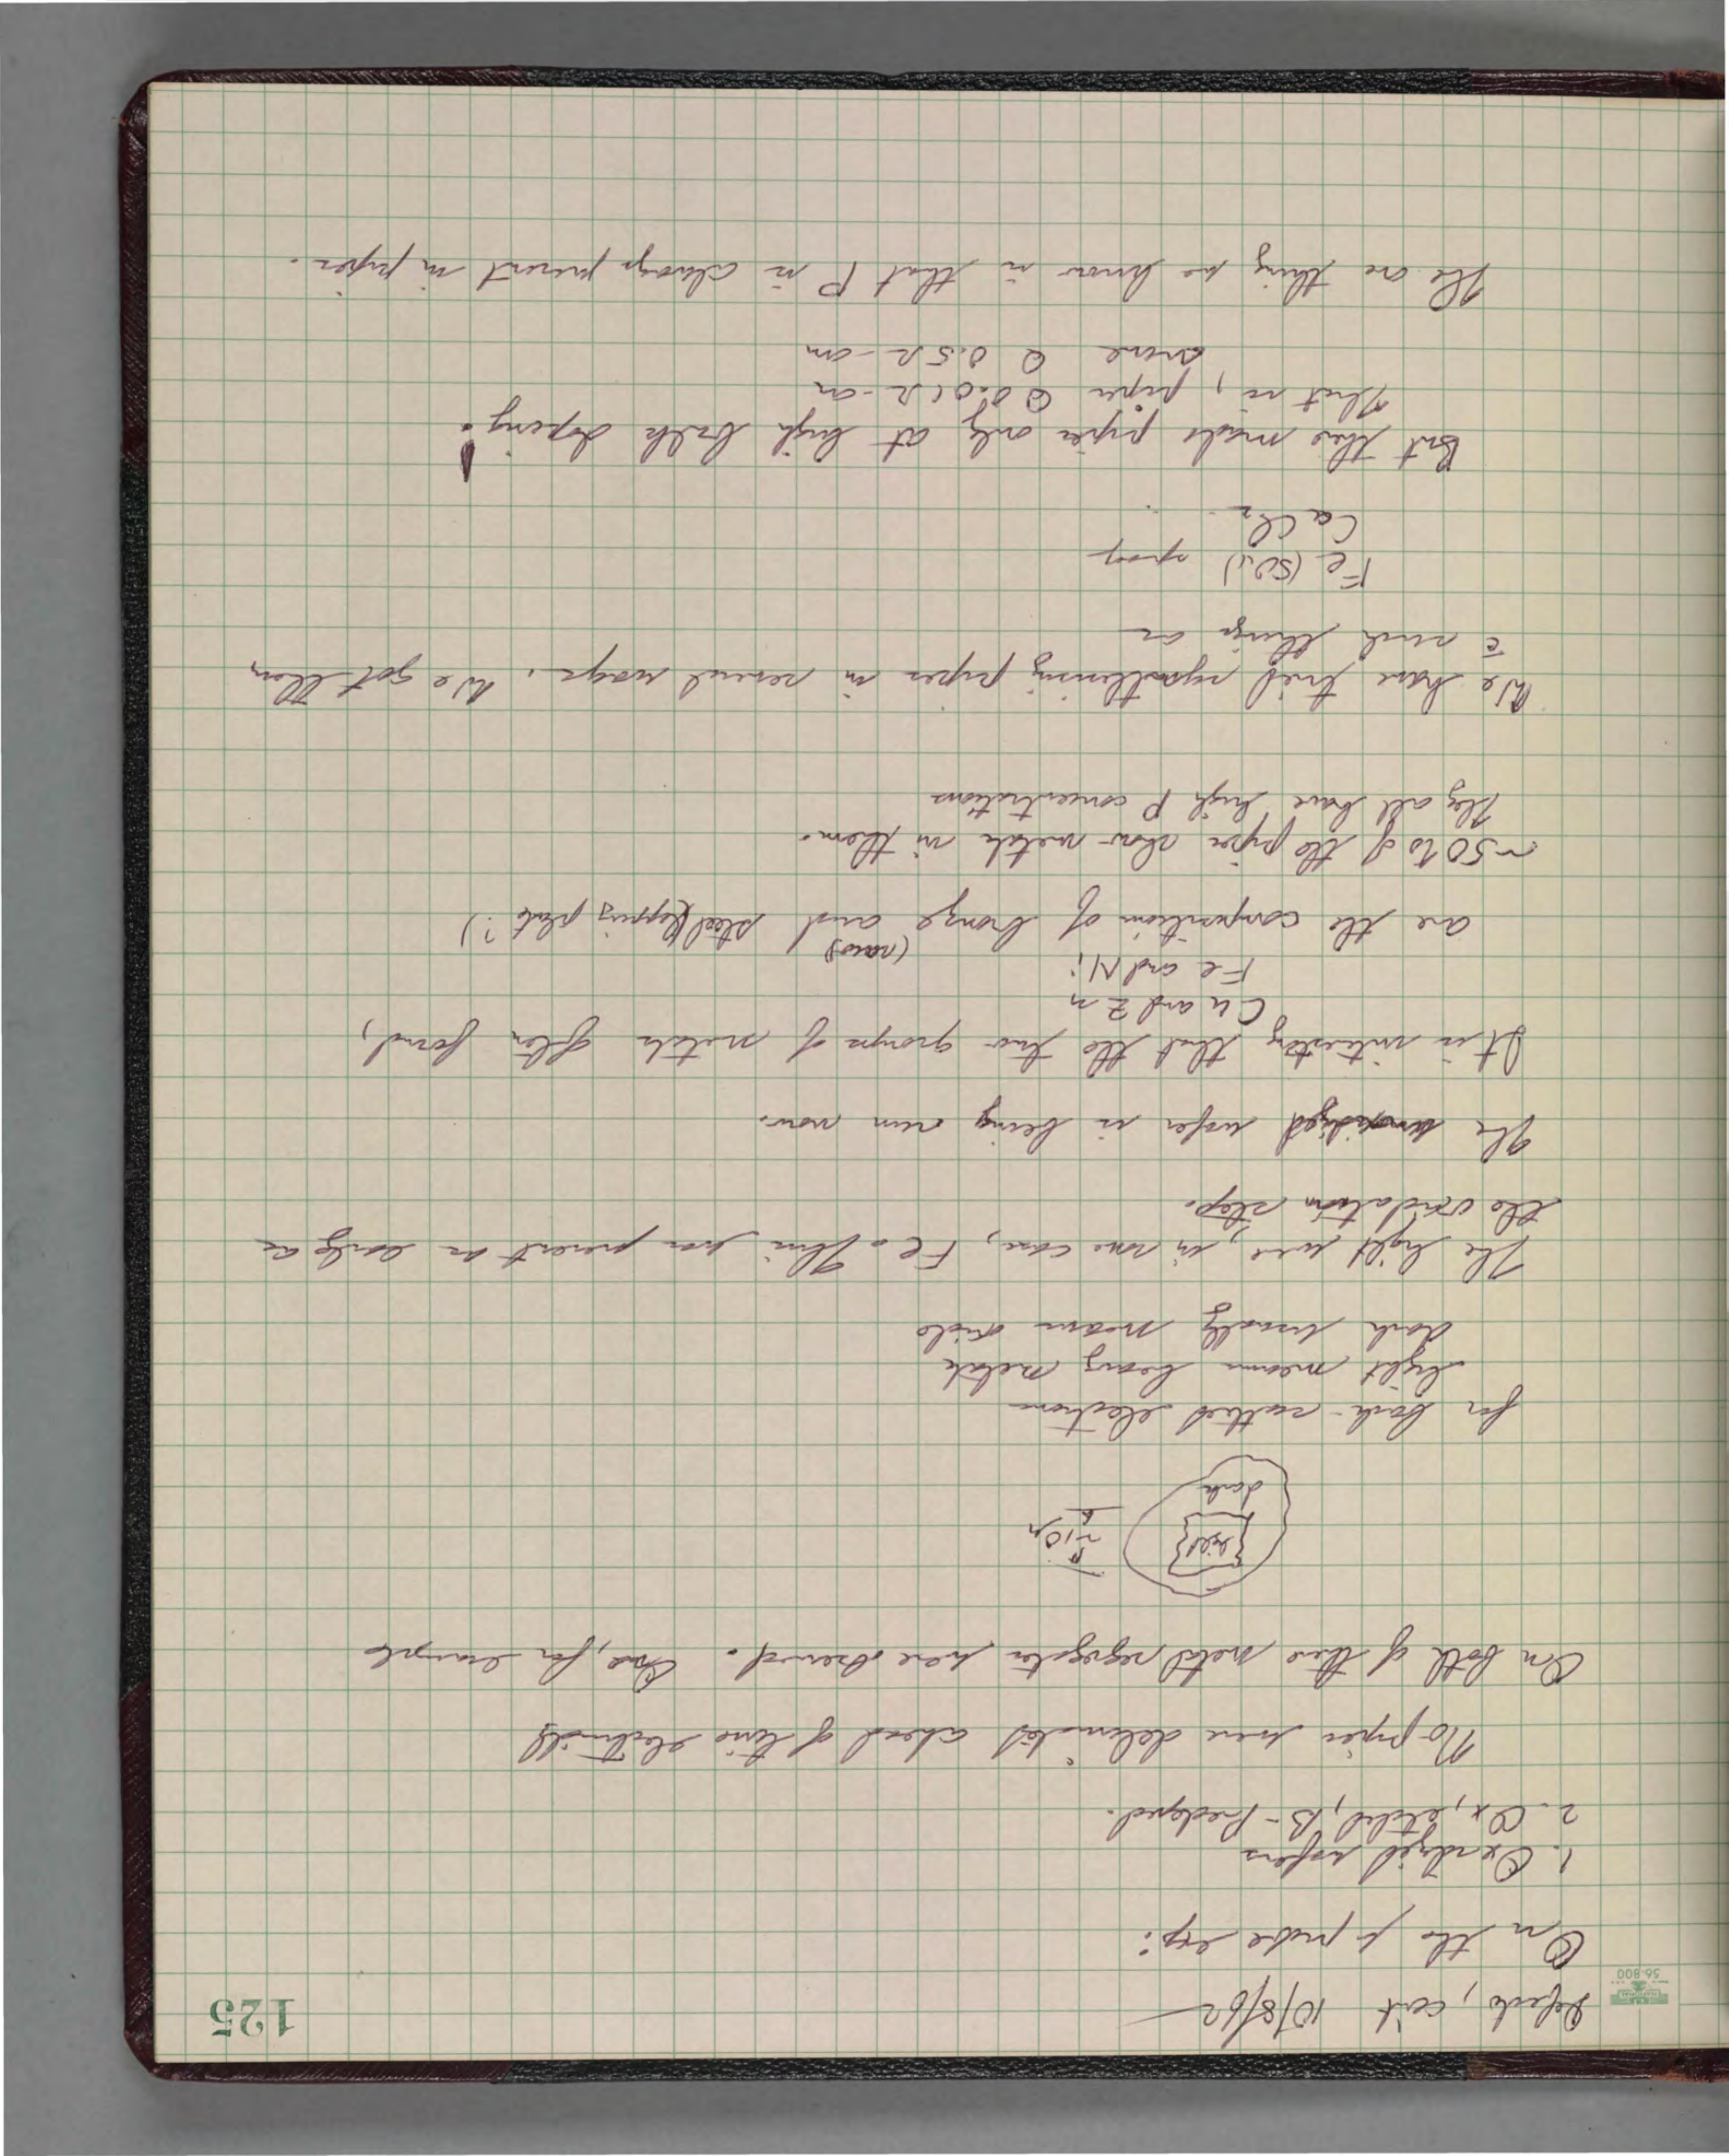 125
NATIONAL
56-800
Defects, con't 10/8/62
On the µ probe exp:
1. Oxidized wafers
2. Ox, etched, B-Predeped.
No pipes were delineated ahead of time electrically
On both of these metal segregates were observed. One, for example
light
dark
~10µ
for back-scattered electrons
light means heavy metals
dark usually means oxide
The light were, in one case, Fe. This was present as early as
the oxidation step.
The unoxidized wafer is being run now.
It is interesting that the two groups of metals often found,
Cu and Zn
Fe and Ni
are the composition of bronze and steel (lapping plate?)
(saws)
~50% of the pipes show metals in them.
They all have high P concentrations
We have tried synthesizing pipes in several ways. We got them
c̄ such things as
Fe (SO4) spray
CaCl2 "
But this made pipes only at high bulk doping!
That is, pipes @ 0.01 Ω-cm
none @ 0.5 Ω-cm
The one thing we know is that P is always present in pipes.